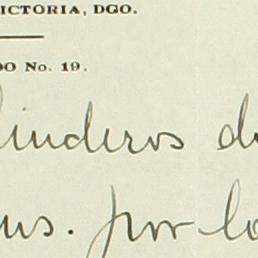 ICTORIA, DGO.
DO No. 19.
linderos d
us. por lo